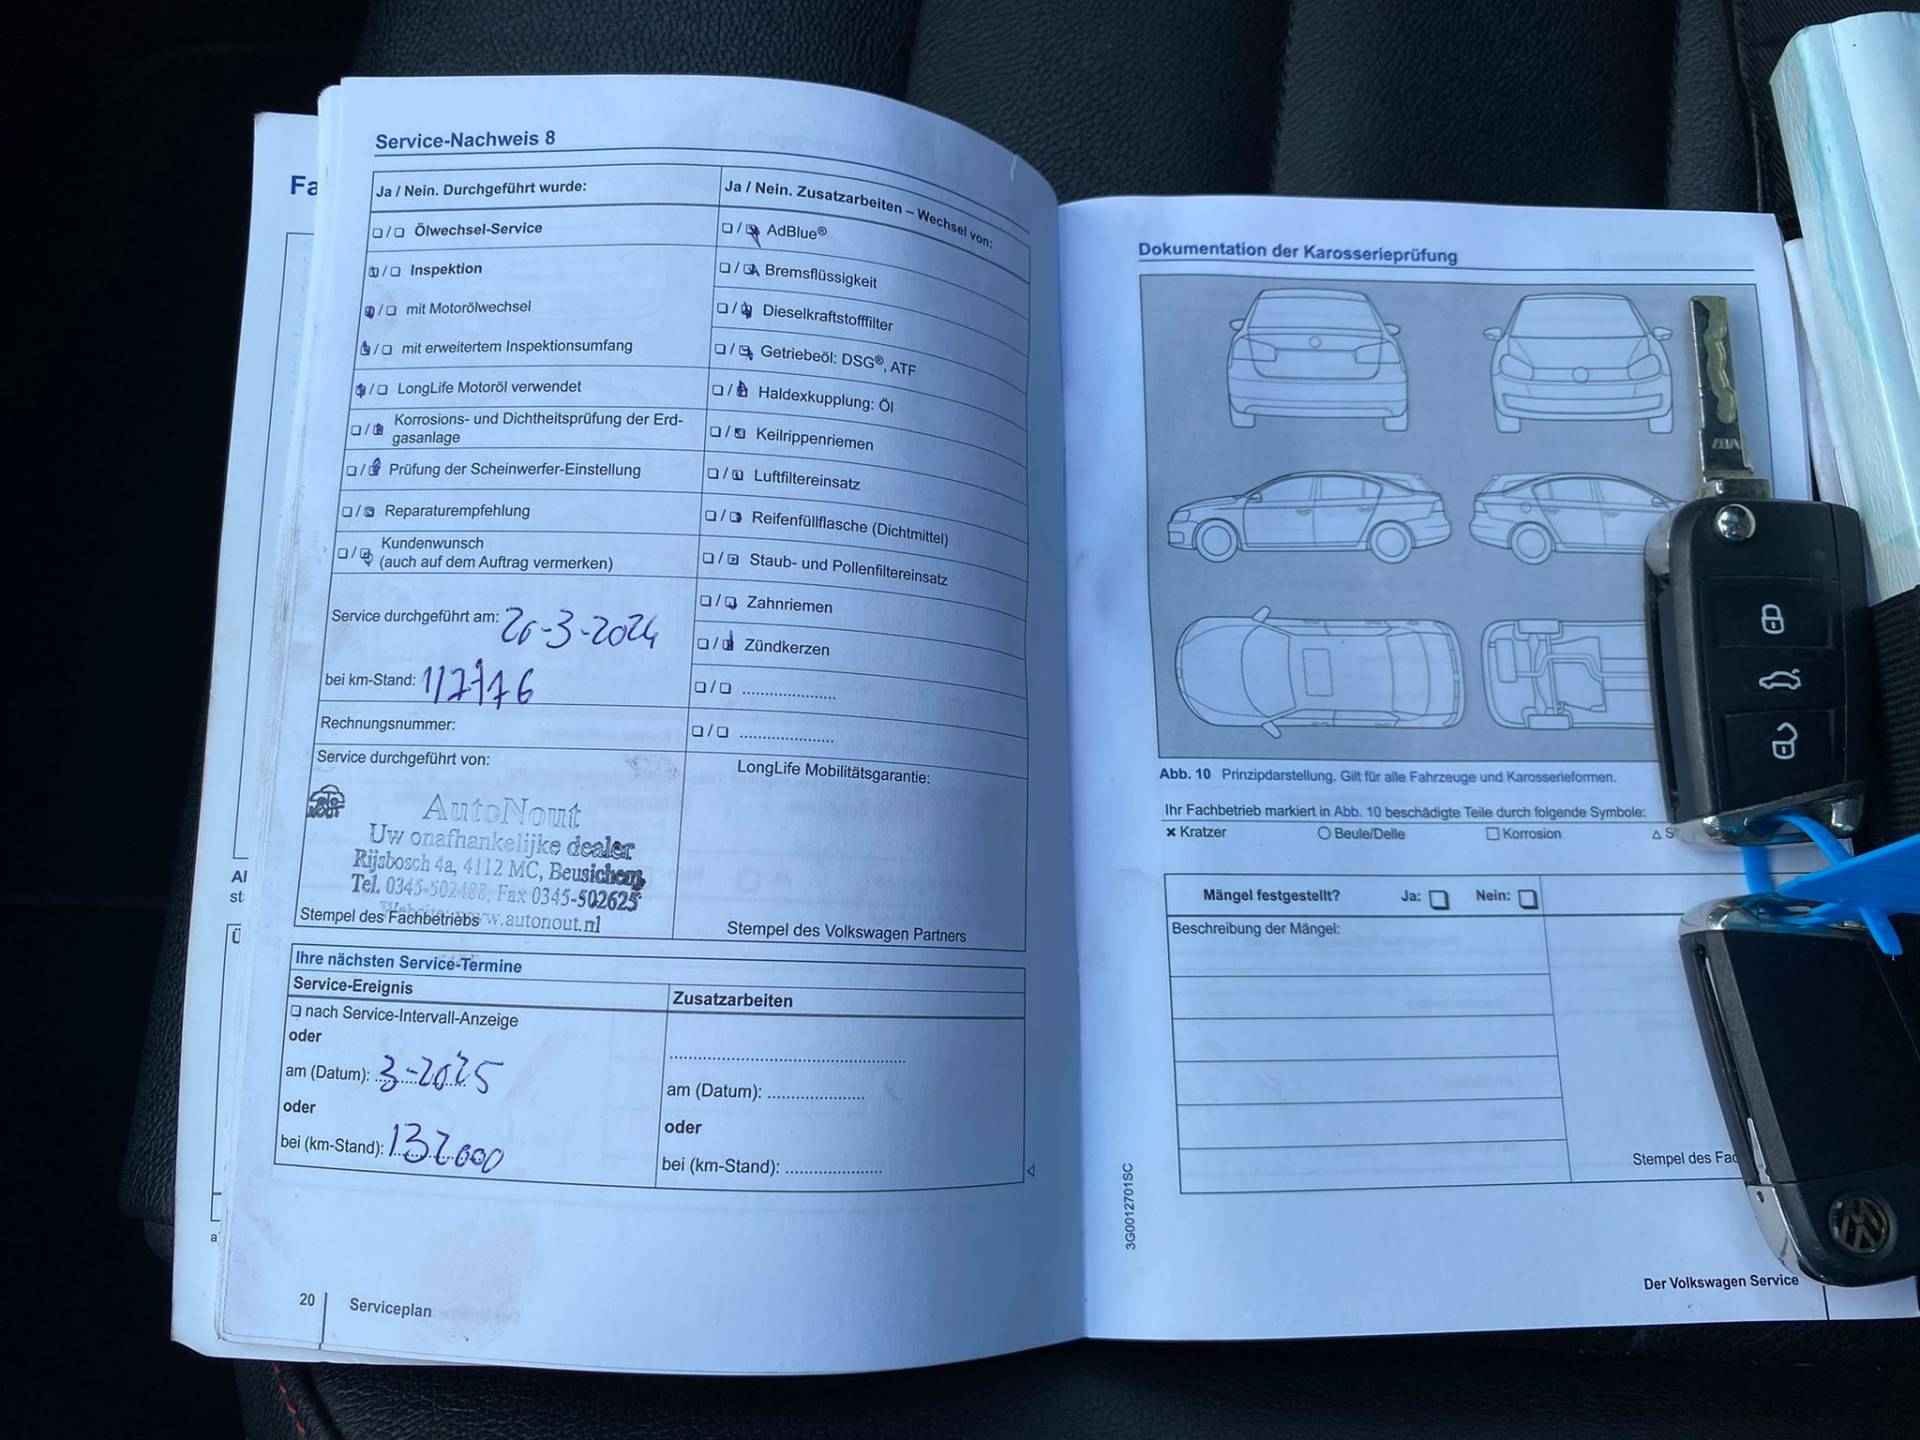 Fa
Service-Nachweis 8
Ja / Nein. Durchgeführt wurde:
Ja / Nein. Zusatzarbeiten – Wechsel von:
Ölwechsel-Service
AdBlue®
Inspektion
Bremsflüssigkeit
mit Motorölwechsel
Dieselkraftstofffilter
mit erweitertem Inspektionsumfang
Getriebeöl: DSG®, ATF
LongLife Motoröl verwendet
Haldexkupplung: Öl
Korrosions- und Dichtheitsprüfung der Erd-
gasanlage
Keilrippenriemen
Prüfung der Scheinwerfer-Einstellung
Luftfiltereinsatz
Reparaturempfehlung
Reifenfüllflasche (Dichtmittel)
Kundenwunsch
(auch auf dem Auftrag vermerken)
Staub- und Pollenfiltereinsatz
Zahnriemen
Service durchgeführt am: 20-3-2024
Zündkerzen
bei km-Stand:
Rechnungsnummer:
Service durchgeführt von:
LongLife Mobilitätsgarantie:
AutoNout
Uw onafhankelijke dealer
Rijsbosch 4a, 4112 MC, Beusichem
Tel. 0345-502488, Fax 0345-502625
www.autonout.nl
Stempel des Fachbetriebs
Stempel des Volkswagen Partners
Ihre nächsten Service-Termine
Service-Ereignis
Zusatzarbeiten
nach Service-Intervall-Anzeige
oder
am (Datum): 3-2025
am (Datum):
oder
oder
bei (km-Stand): 132000
bei (km-Stand):
20
Serviceplan
Al
st
Ü
a
Dokumentation der Karosserieprüfung
Abb. 10 Prinzipdarstellung. Gilt für alle Fahrzeuge und Karosserieformen.
Ihr Fachbetrieb markiert in Abb. 10 beschädigte Teile durch folgende Symbole:
Kratzer
Beule/Delle
Korrosion
S
Mängel festgestellt?
Ja:
Nein:
Beschreibung der Mängel:
Stempel des Fac
3G0012701SC
Der Volkswagen Service